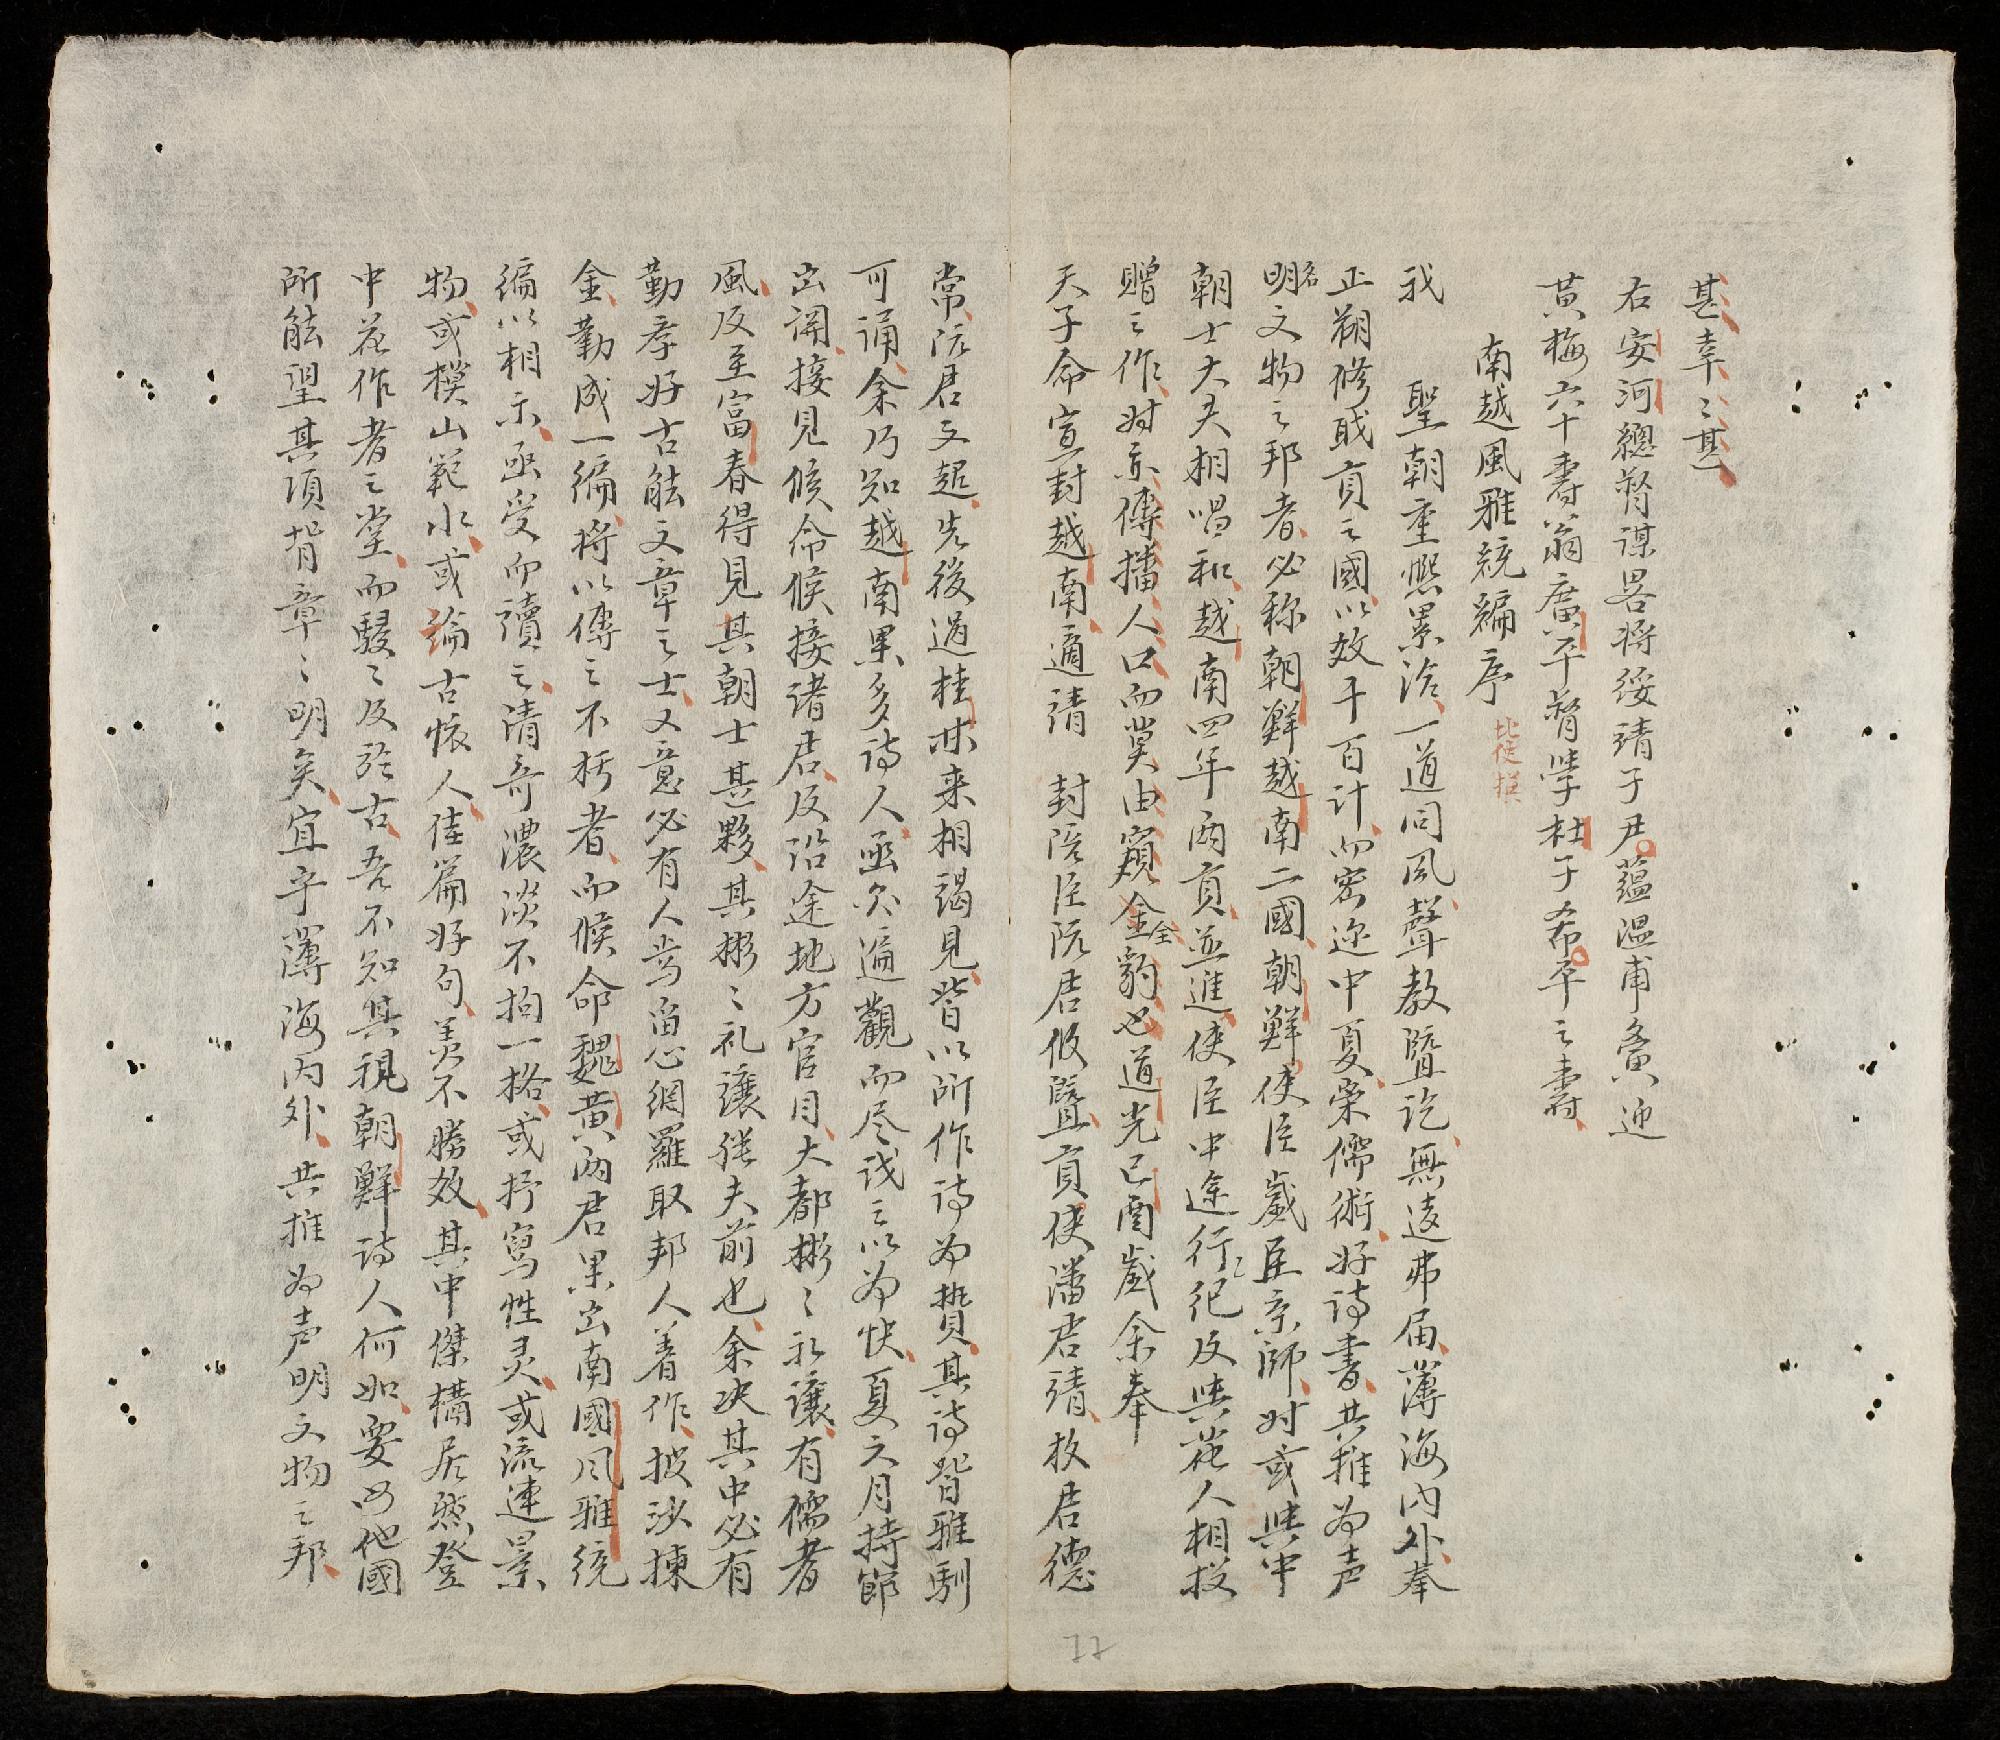 甚幸〻甚
右安河總督謀畧將綏靖子尹蘊温甫裔迎
黃梅六十壽翁廣平督學杜子希平之壽
南越風雅統編序 北使撰
我 聖朝重熙累洽一道同風聲教暨訖無遠弗届薄海内外奉
正朔修職貢之國以效千百計而密迩中夏崇儒術好詩書共推为声
明名文物之邦者必称朝鮮越南二國朝鮮使臣歲臣京師时或與中
朝士大夫相唱和越南四年兩貢並進使臣中途行〻紀及與花人相投
贈之作时亦傳播人口而莫由窺金全豹也道光己酉歲余奉
天子命宣封越南適請 封陪臣阮君攸暨貢使潘君靖枚君德
常阮君文超先後過桂林来相謁見皆以所作詩为贄其詩皆雅馴
可誦余乃知越南果多詩人亟欲遍觀而尽识之以为快夏六月持節
出関接見候命候接诸君及沿途地方官目大都彬〻礼讓有儒者
風及至富春得見其朝士甚夥其彬〻礼讓猶夫前也余决其中必有
勤孝好古能文章之士又意必有人焉畱心網羅取邦人着作披沙揀
金勤成一編将以傳之不朽者而候命魏黃兩君果出南國风雅统
編以相示亟受而讀之清奇濃淡不拘一格或抒寫性灵或流連景
物或模山範水或論古懷人佳篇好句美不勝效其中傑構居然登
中花作者之堂而駸〻及於古吾不知其視朝鮮詩人何如要而他國
所能望其項背章〻明矣宜乎薄海内外共推为声明文物之邦
77